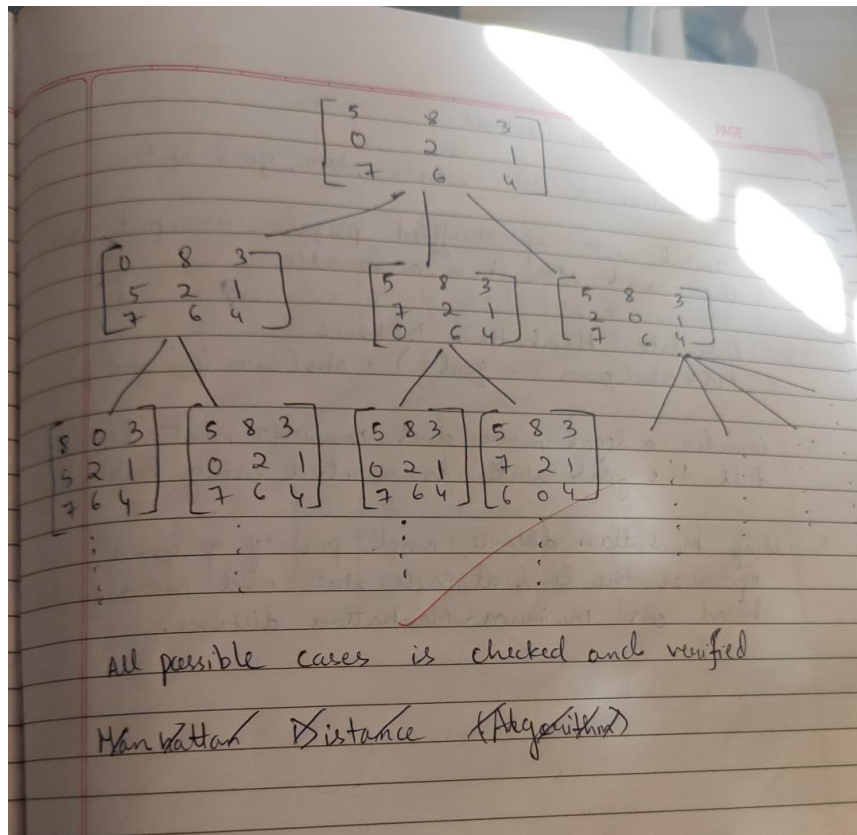 PAGE
5 8 3
0 2 1
7 6 4
0 8 3
5 2 1
7 6 4
5 8 3
7 2 1
0 6 4
5 8 3
2 0 1
7 6 4
8 0 3
5 2 1
7 6 4
5 8 3
0 2 1
7 6 4
5 8 3
0 2 1
7 6 4
5 8 3
7 2 1
6 0 4
All possible cases is checked and verified
Manhattan Distance (Algorithm)